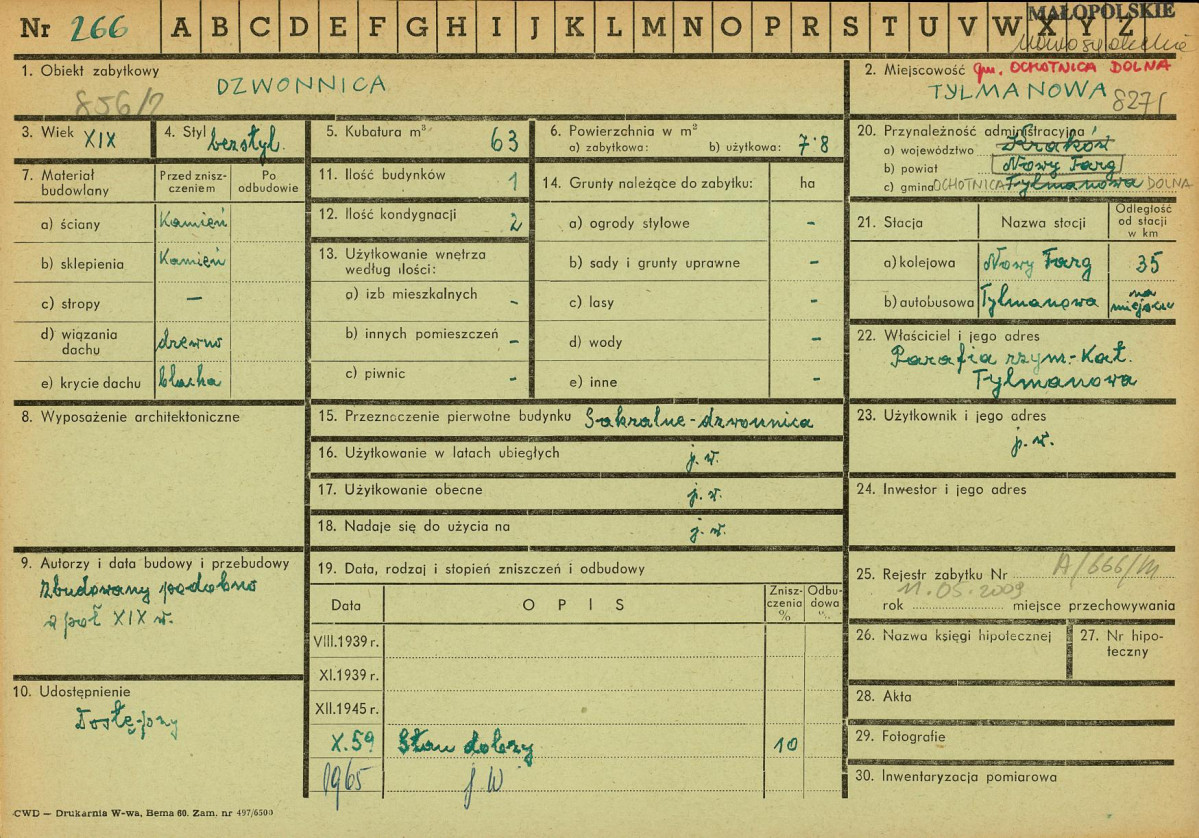 Nr 266 A B C D E F G H I J K L M N O P R S T U V W X Y Z MAŁOPOLSKIE
Nowosądeckie
1. Obiekt zabytkowy
DZWONNICA
856/2
2. Miejscowość gm. OCHOTNICA DOLNA
TYLMANOWA 8271
3. Wiek XIX
4. Styl bezstyl.
5. Kubatura m³ 63
6. Powierzchnia w m²
a) zabytkowa: b) użytkowa: 7·8
7. Materiał budowlany
Przed znisz-
czeniem
Po
odbudowie
a) ściany Kamień
b) sklepienia Kamień
c) stropy –
d) wiązania
dachu drzewo
e) krycie dachu blacha
8. Wyposażenie architektoniczne
9. Autorzy i data budowy i przebudowy
Zbudowany podobno
z poł XIX w.
10. Udostępnienie
Dostępny
11. Ilość budynków 1
12. Ilość kondygnacji 2
13. Użytkowanie wnętrza
według ilości:
a) izb mieszkalnych -
b) innych pomieszczeń -
c) piwnic -
14. Grunty należące do zabytku: ha
a) ogrody stylowe -
b) sady i grunty uprawne -
c) lasy -
d) wody -
e) inne -
15. Przeznaczenie pierwotne budynku Sakralne-dzwonnica
16. Użytkowanie w latach ubiegłych j.w.
17. Użytkowanie obecne j.w.
18. Nadaje się do użycia na j.w.
19. Data, rodzaj i stopień zniszczeń i odbudowy
Data OPIS Znisz-
czenia
% Odbu-
dowa
%
VIII.1939 r.
XI.1939 r.
XII.1945 r.
X.59 Stan dobry 10
1965 j.w
20. Przynależność administracyjna
a) województwo Kraków
b) powiat Nowy Targ
c) gmina OCHOTNICA Tylmanowa DOLNA
21. Stacja Nazwa stacji Odległość
od stacji
w km
a) kolejowa Nowy Targ 35
b) autobusowa Tylmanowa na
miejscu
22. Właściciel i jego adres
Parafia rzym-Kat.
Tylmanowa
23. Użytkownik i jego adres
j.w.
24. Inwestor i jego adres
25. Rejestr zabytku Nr A/666/M
11.05.2009
rok miejsce przechowywania
26. Nazwa księgi hipotecznej
27. Nr hipo-
teczny
28. Akta
29. Fotografie
30. Inwentaryzacja pomiarowa
CWD — Drukarnia W-wa, Bema 60. Zam. nr 497/6500